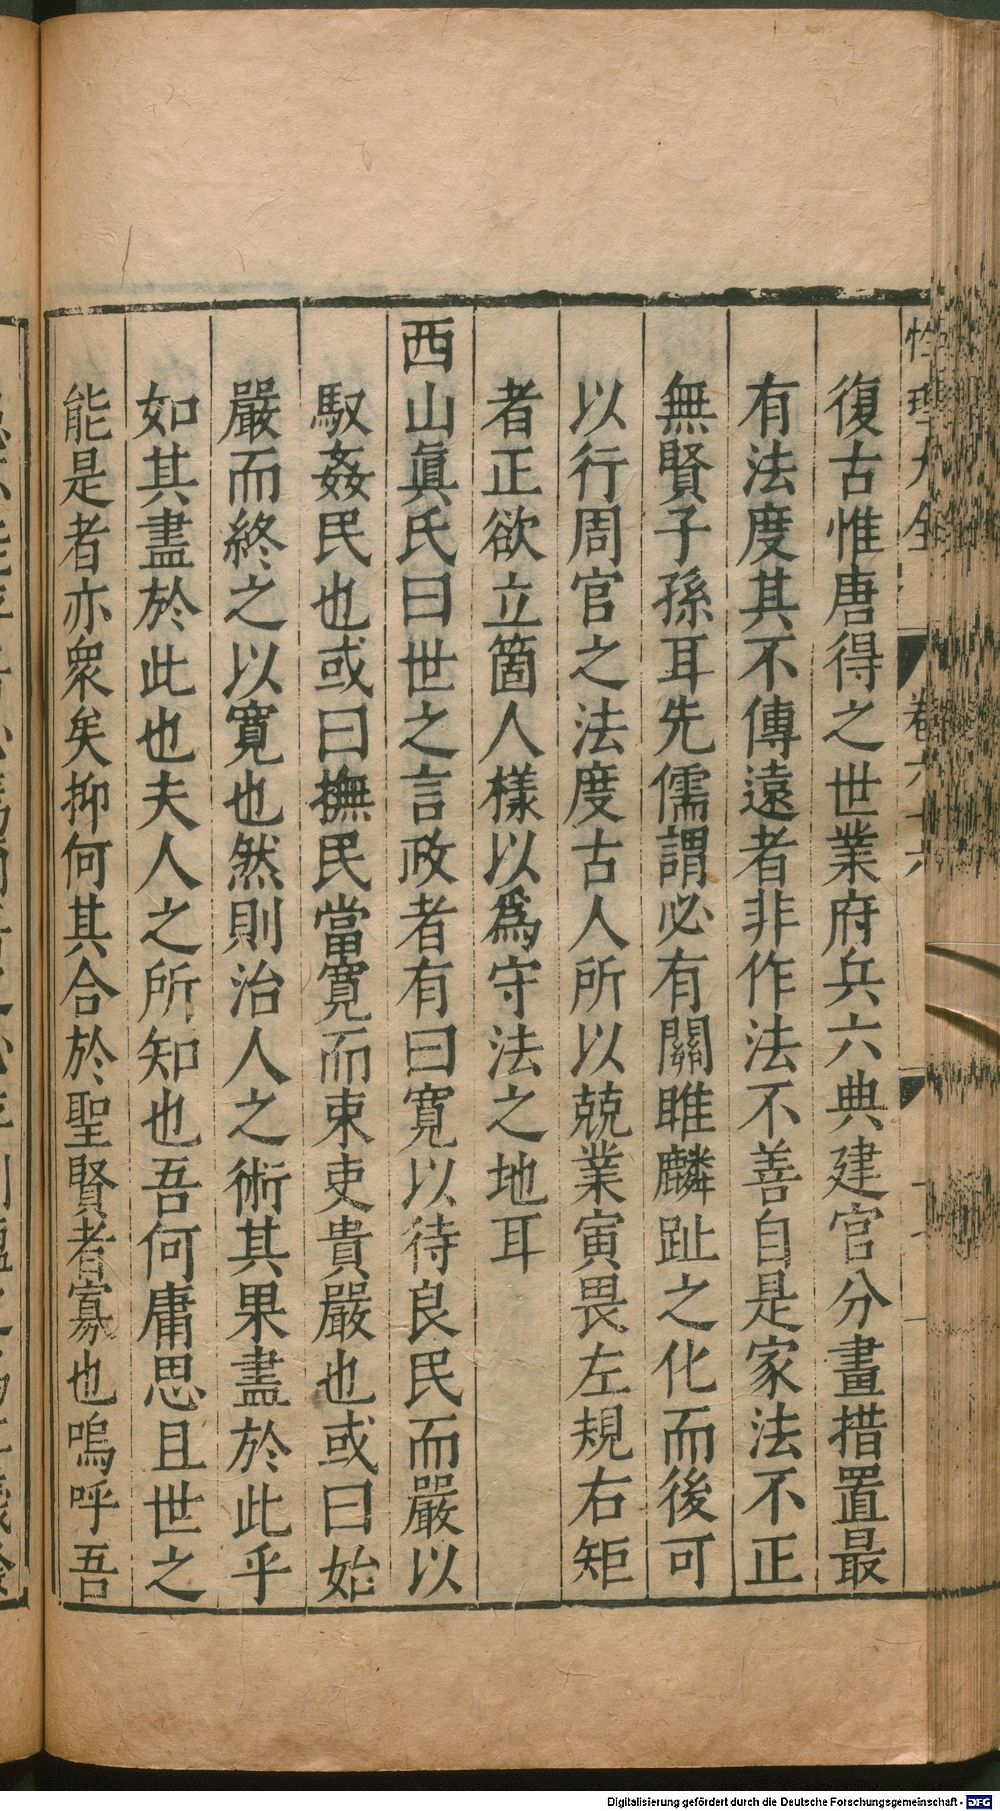 性理大全
卷六十六
復古惟唐得之世業府兵六典建官分畫措置最
有法度其不傳遠者非作法不善自是家法不正
無賢子孫耳先儒謂必有關雎麟趾之化而後可
以行周官之法度古人所以兢業寅畏左規右矩
者正欲立箇人樣以爲守法之地耳
西山眞氏曰世之言政者有曰寬以待良民而嚴以
馭姦民也或曰撫民當寬而束吏貴嚴也或曰始
嚴而終之以寬也然則治人之術其果盡於此乎
如其盡於此也夫人之所知也吾何庸思且世之
能是者亦衆矣抑何其合於聖賢者寡也嗚呼吾
Digitalisierung gefördert durch die Deutsche Forschungsgemeinschaft - DFG